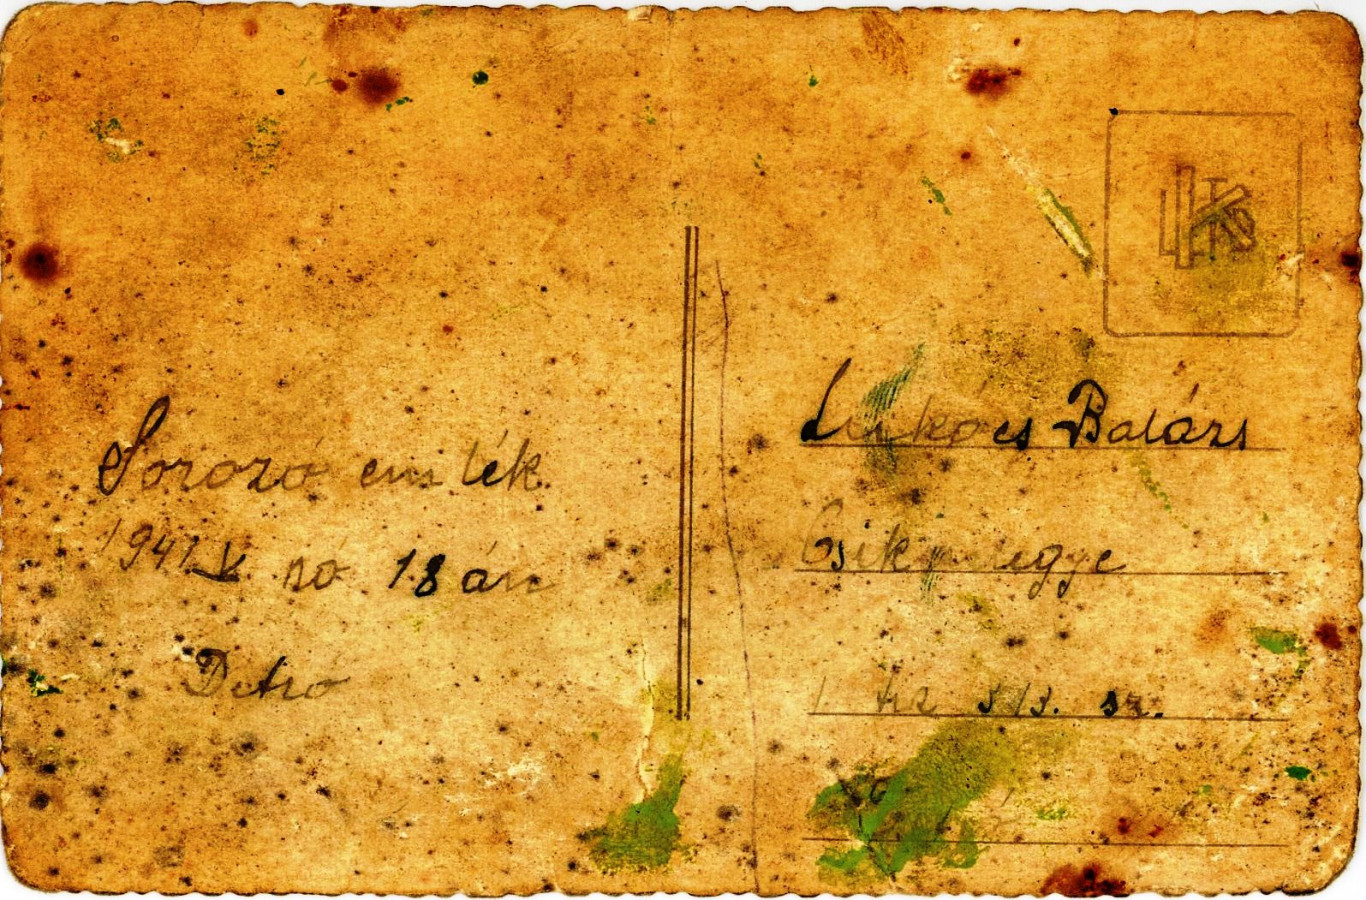 Sorozó emlék.
1941 V hó 18 án
Dehó
Lukács Balázs
Csikmegye
1. tsz 313. sz.